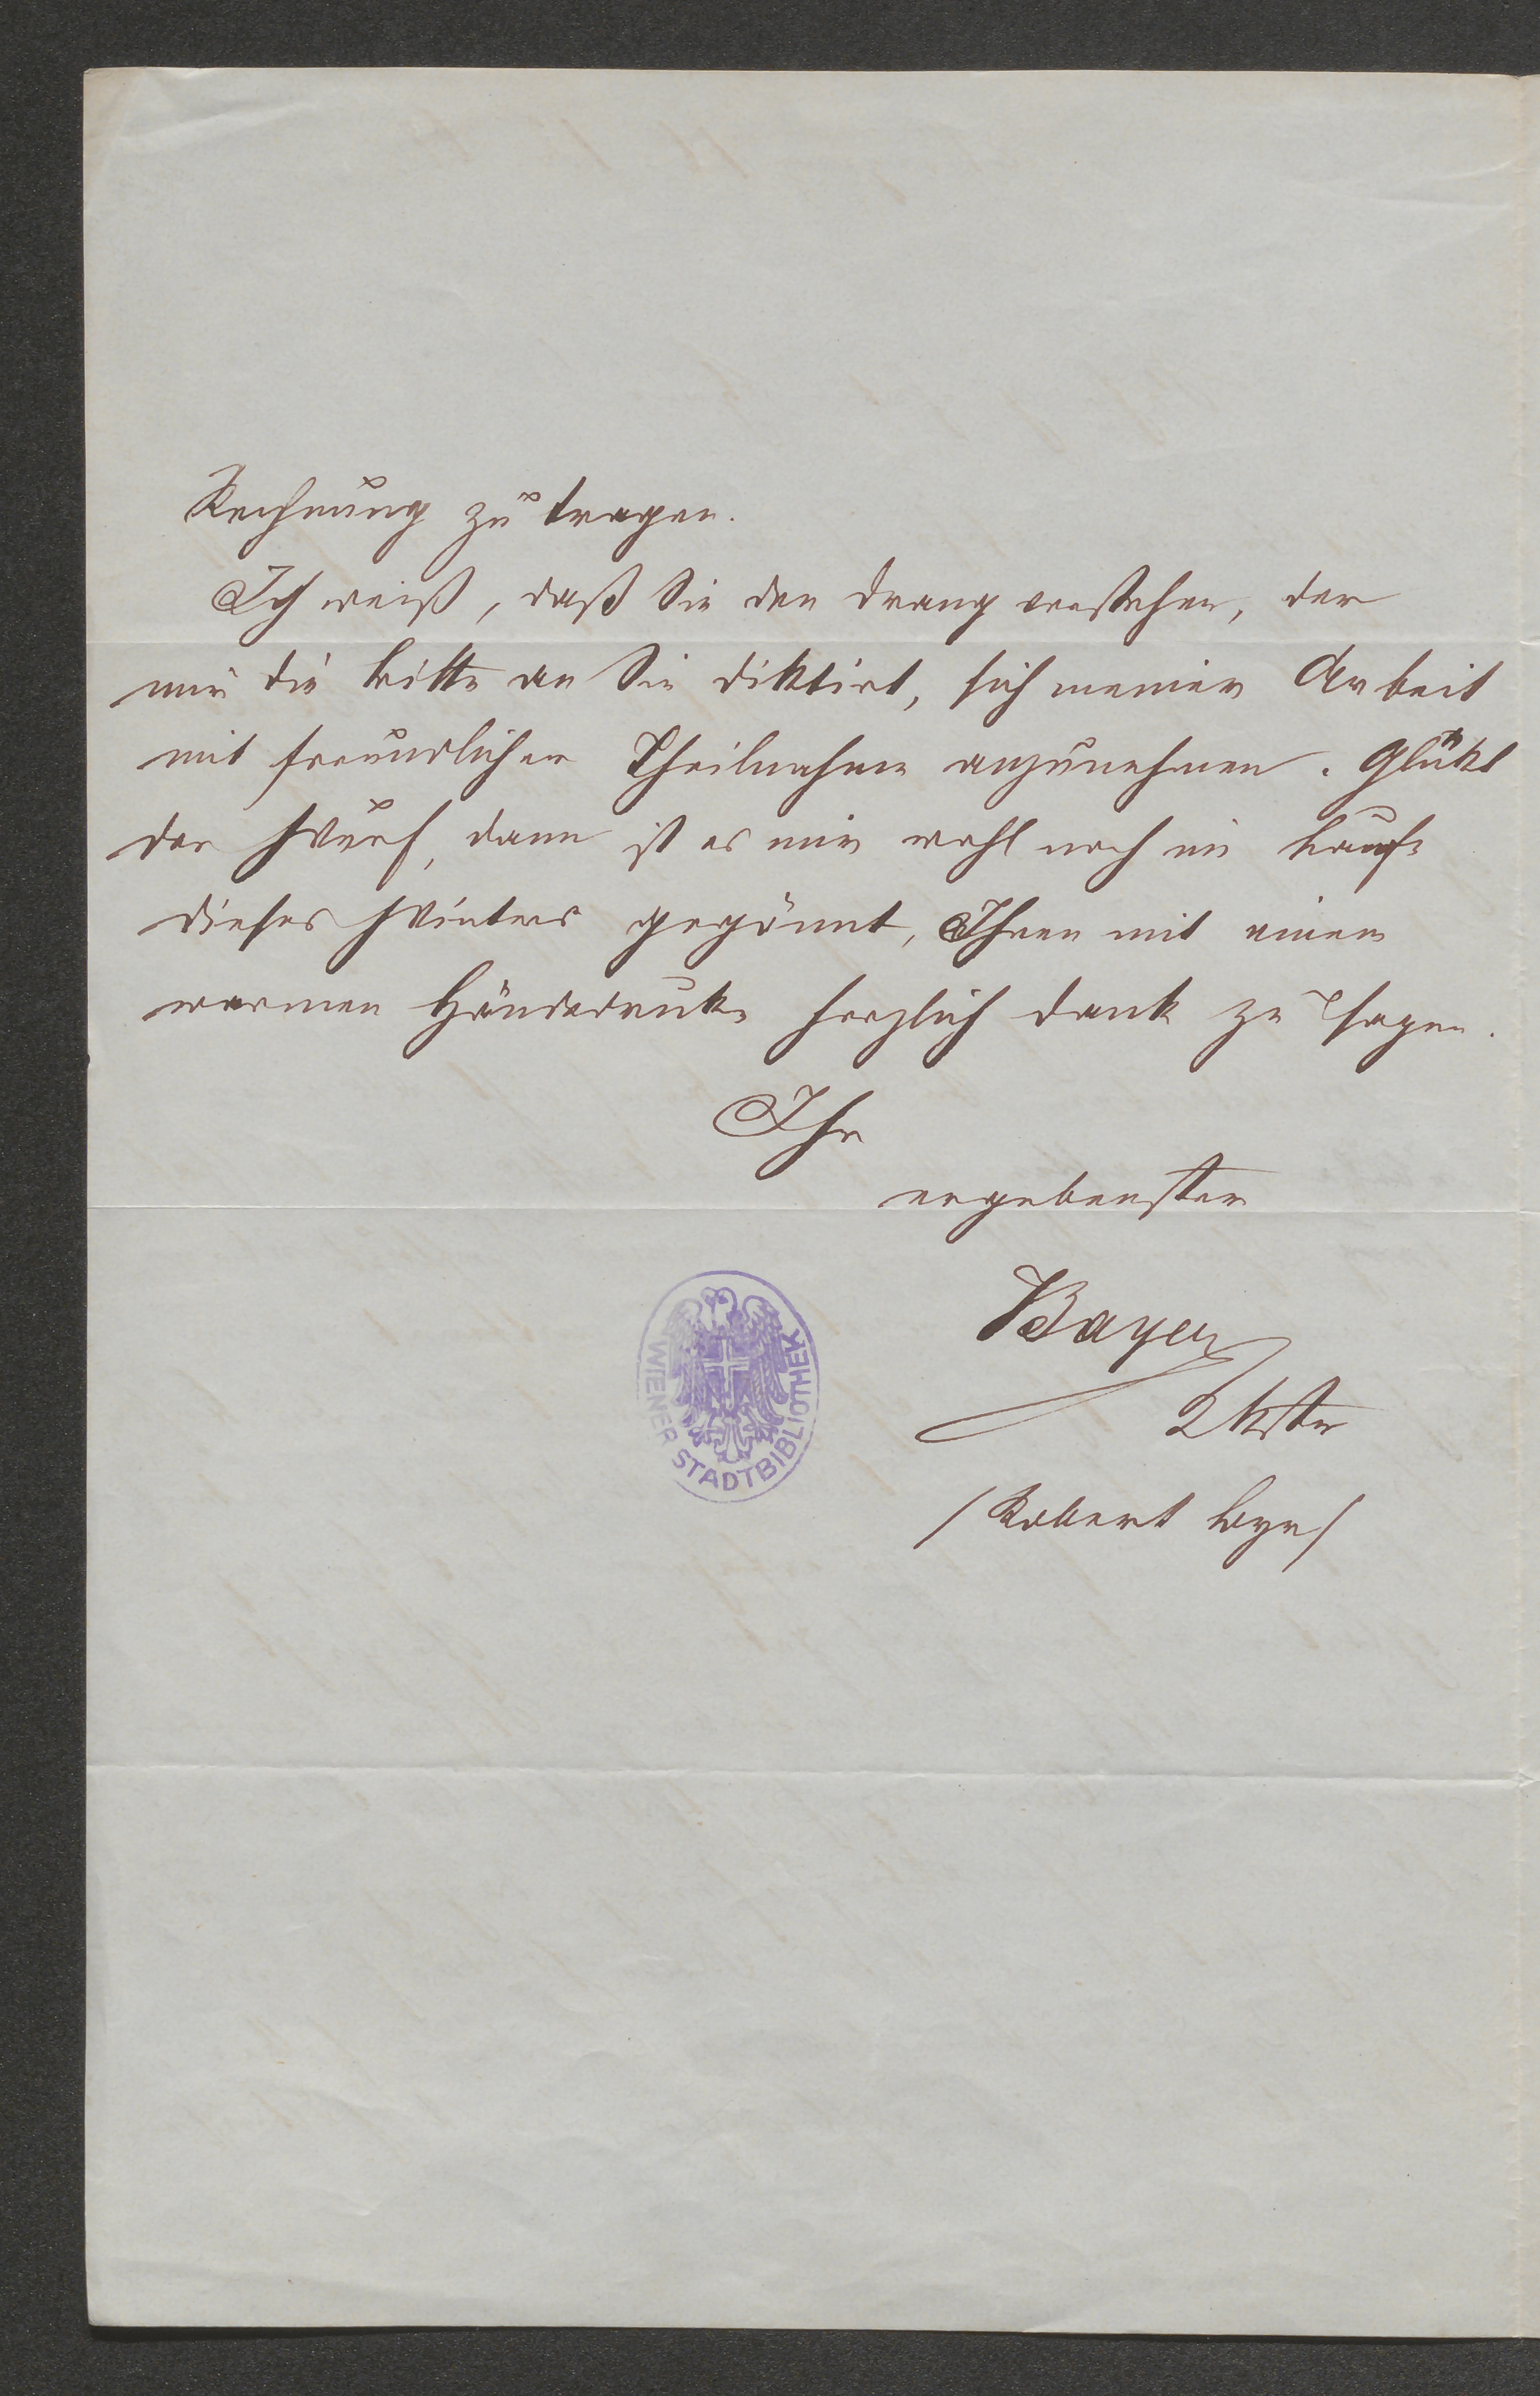 Rechnung zu tragen.
Ich weiß, daß Sie den Drang verstehen, der
mir die Bitte an Sie diktirt, sich meiner Arbeit
mit freundlicher Theilnahme anzunehmen. Glükt
der Wurf, dann ist es mir wohl noch im Laufe
dieses Winters gegönnt, Ihnen mit einem
warmen Händedruke herzlich Dank zu sagen.
Ihr
ergebenster
Bayer
/Robert Byr/
WIENER STADTBIBLIOTHEK